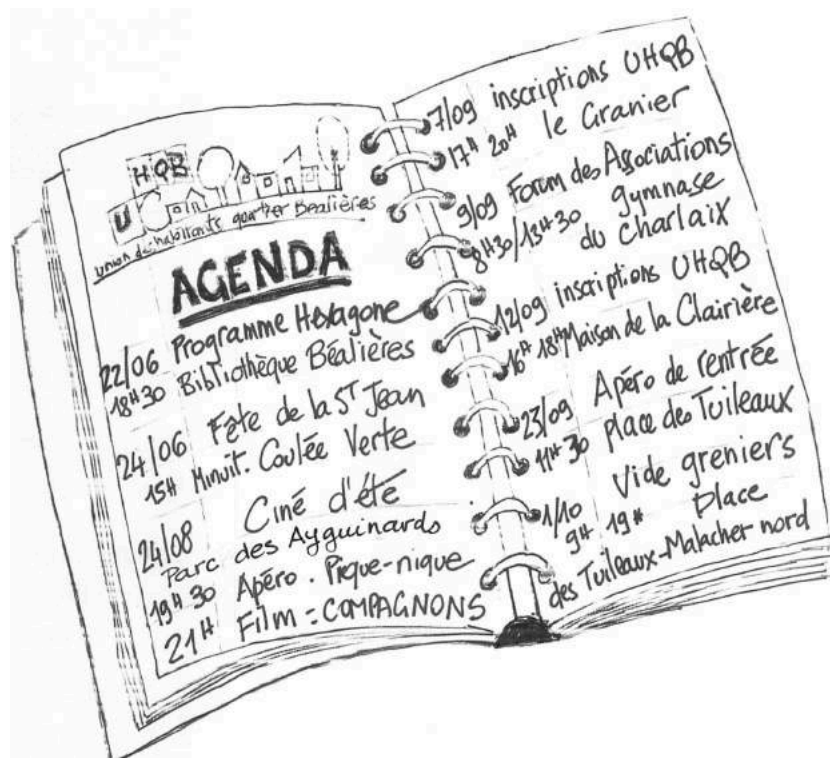 HQB
U
union des habitants quartier Béalières
AGENDA
22/06 Programme Hexagone
18H30 Bibliothèque Béalières
24/06 Fête de la ST Jean
15H Minuit. Coulée Verte
24/08 Ciné d'été
Parc des Ayguinards
19H30 Apéro. Pique-nique
21H Film = COMPAGNONS
7/09 inscriptions UHQB
17H 20H le Granier
9/09 Forum des Associations
8H30/13H30 gymnase
du Charlaix
12/09 inscriptions UHQB
16H 18H Maison de la Clairière
23/09 Apéro de rentrée
11H30 place des Tuileaux
Vide greniers
1/10
9H 19H Place
des Tuileaux-Malacher nord